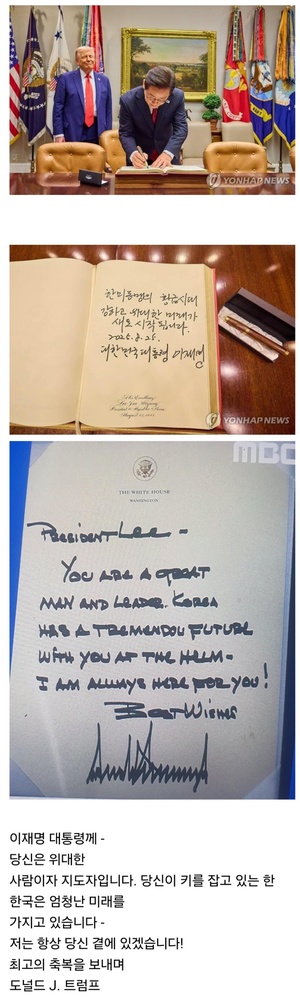 YONHAP NEWS
한미동맹의 황금시대
강하고 위대한 미래가
새로 시작됩니다.
2025. 8. 25.
대한민국 대통령 이재명
His Excellency
Lee Jae Myung
President of the Republic of Korea
August 25, 2025
YONHAP NEWS
MBC
THE WHITE HOUSE
WASHINGTON
PRESIDENT LEE -
YOU ARE A GREAT
MAN AND LEADER. KOREA
HAS A TREMENDOU FUTURE
WITH YOU AT THE HELM -
I AM ALWAYS HERE FOR YOU!
BEST WISHES
이재명 대통령께 -
당신은 위대한
사람이자 지도자입니다. 당신이 키를 잡고 있는 한
한국은 엄청난 미래를
가지고 있습니다 -
저는 항상 당신 곁에 있겠습니다!
최고의 축복을 보내며
도널드 J. 트럼프